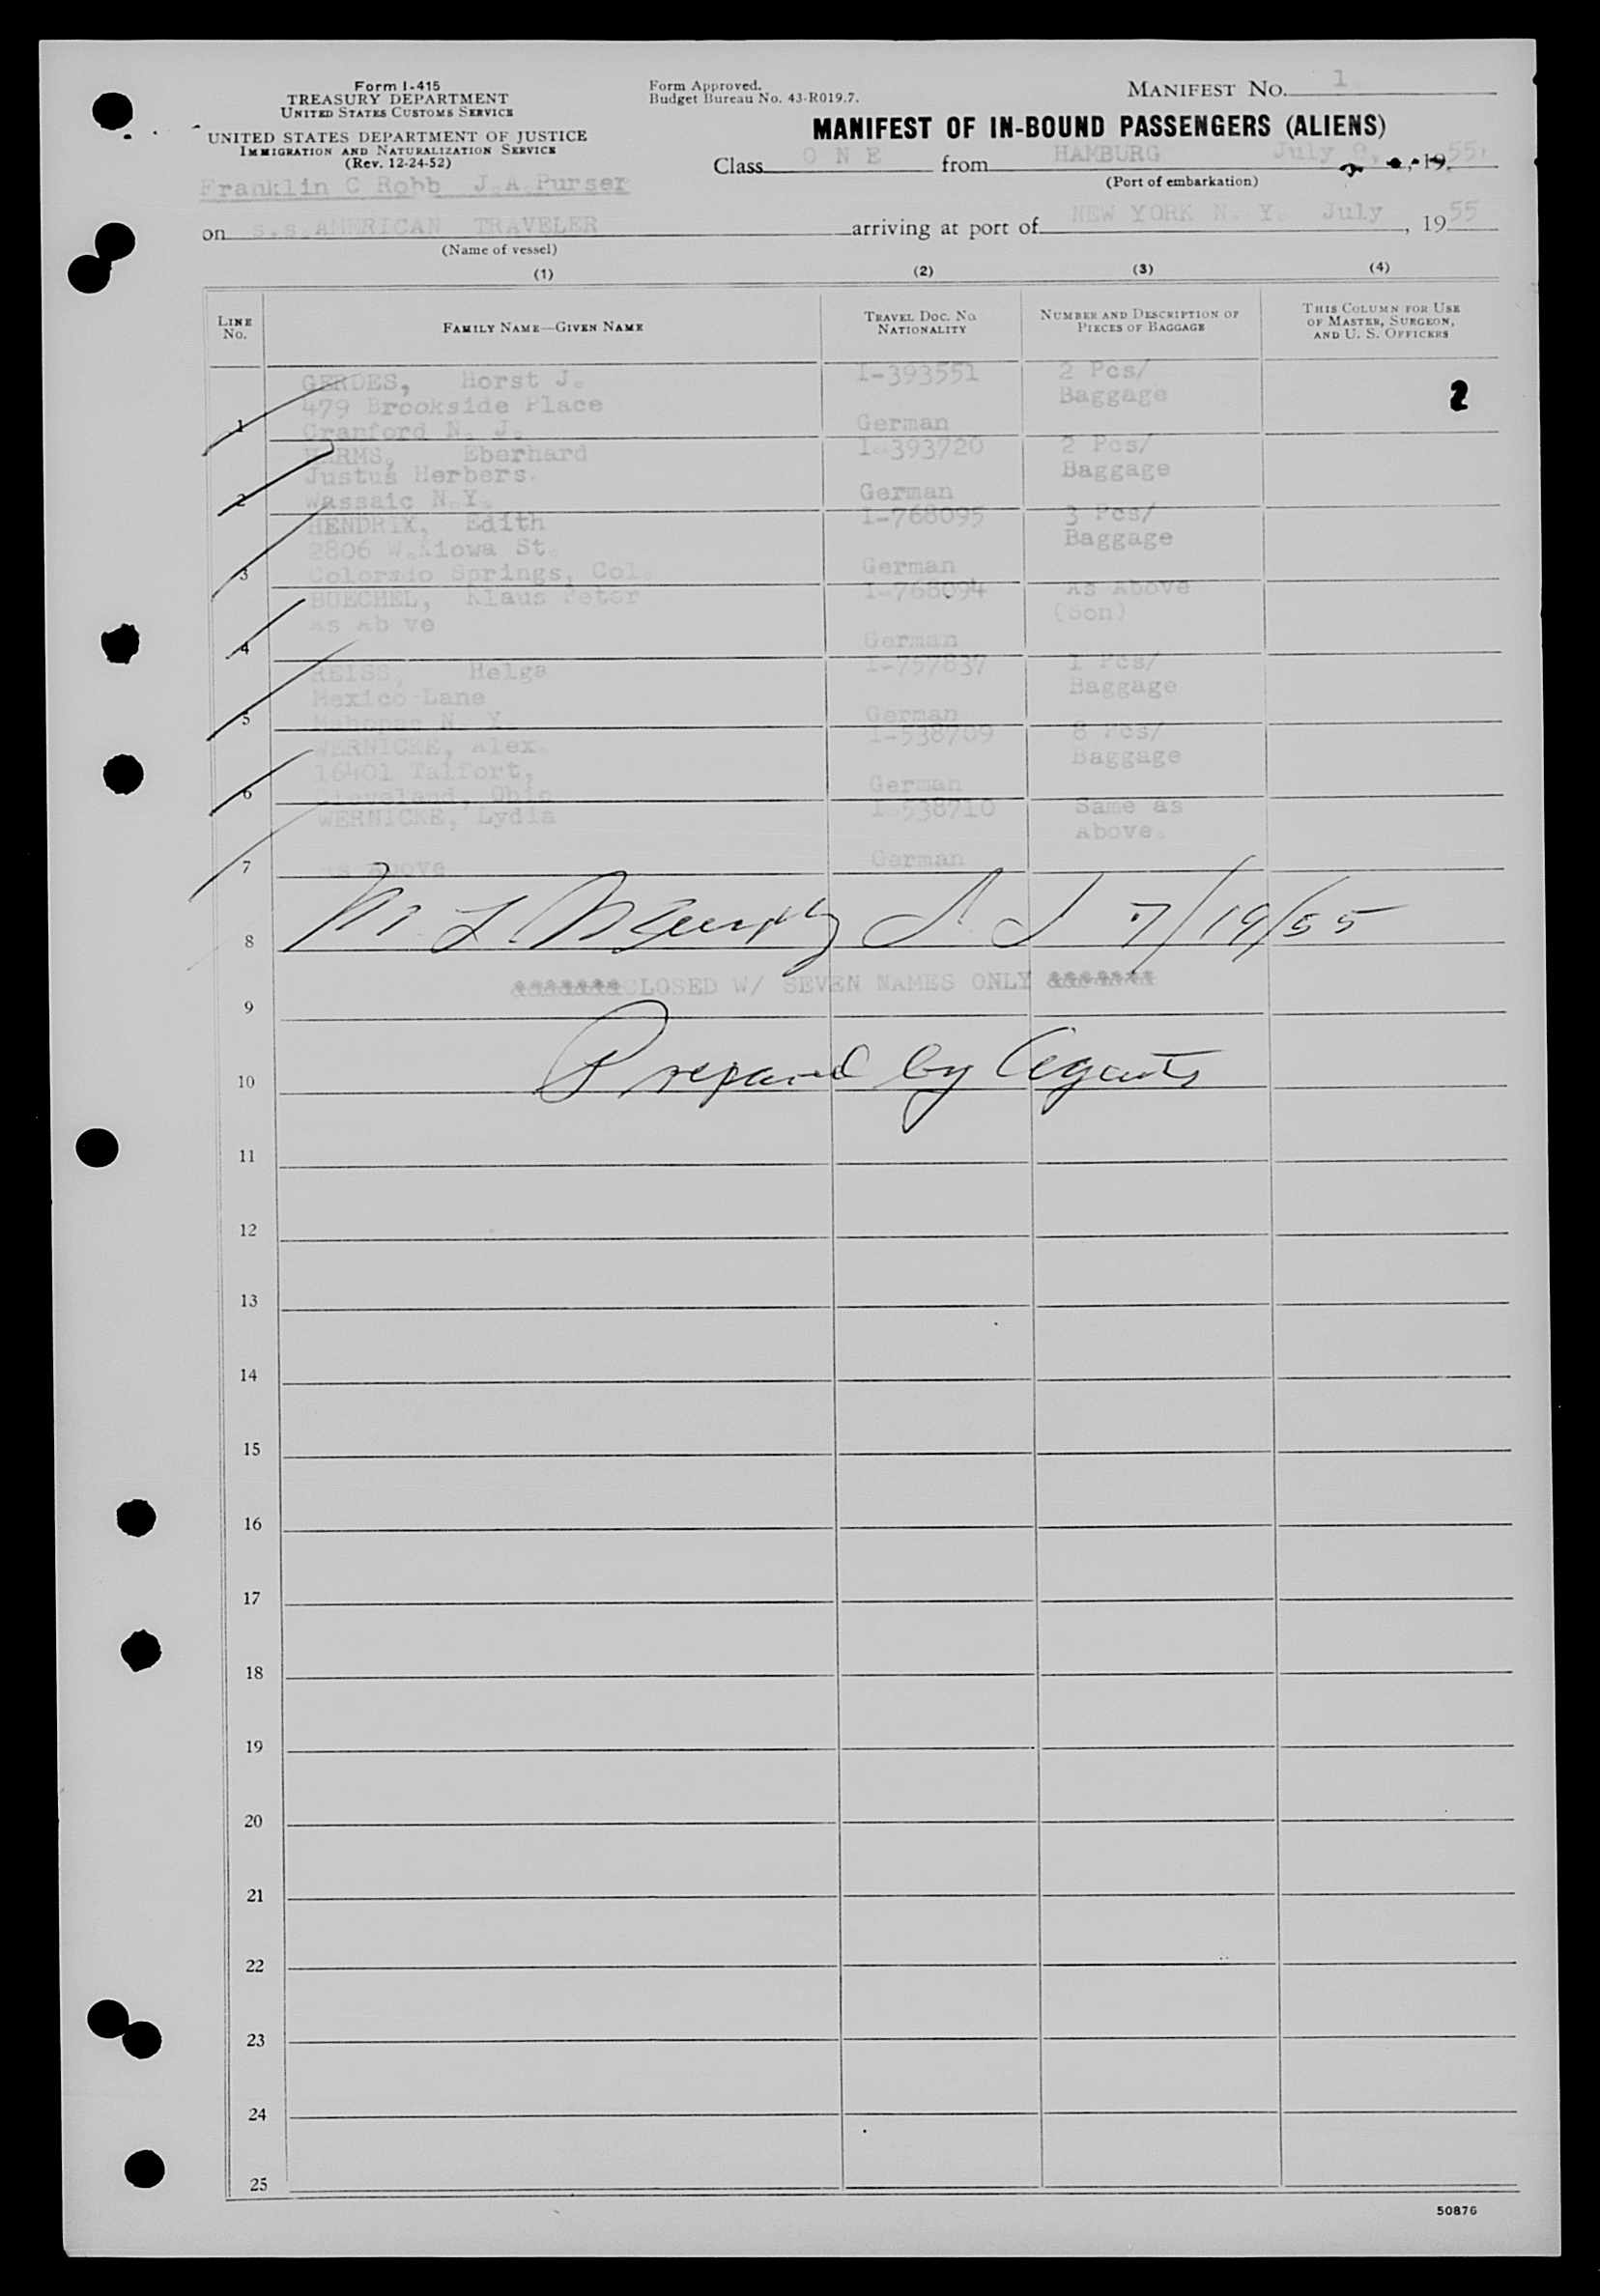 Form I-415
TREASURY DEPARTMENT
UNITED STATES CUSTOMS SERVICE
UNITED STATES DEPARTMENT OF JUSTICE
IMMIGRATION AND NATURALIZATION SERVICE
(Rev. 12-24-52)
Form Approved.
Budget Bureau No. 43-R019.7.
MANIFEST NO. 1
MANIFEST OF IN-BOUND PASSENGERS (ALIENS)
Class O N E from HAMBURG July 9, 1955.
(Port of embarkation)
Franklin C Robb J.A.Purser
on s.s.AMERICAN TRAVELER arriving at port of NEW YORK N. Y. July, 1955
(Name of vessel)
(1) (2) (3) (4)
LINE NO. FAMILY NAME—GIVEN NAME TRAVEL DOC. NO. NATIONALITY NUMBER AND DESCRIPTION OF PIECES OF BAGGAGE THIS COLUMN FOR USE OF MASTER, SURGEON, AND U. S. OFFICERS
GERDES, Horst J. I-393551 2 Pcs/
479 Brookside Place Baggage 2
1 Cranford N. J. German
HARMS, Eberhard I-393720 2 Pcs/
Justus Herbers. Baggage
2 Wassaic N.Y. German
HENDRIX, Edith I-768095 3 Pcs/
2806 W.Kiowa St. Baggage
3 Colorado Springs, Col. German
BUECHEL, Klaus Peter I-768094 As Above
As Ab ve (Son)
4 German
REISS, Helga I-757837 1 Pcs/
Mexico Lane Baggage
5 Mahopac N. Y. German
WERNICKE, Alex. I-538709 8 Pcs/
16401 Talfort, Baggage
6 Cleveland, Ohio German
WERNICKE, Lydia I-538710 Same as
Above.
7 As Above German
8 M. L. Murphy 7/19/55
&&&&&&&CLOSED W/ SEVEN NAMES ONLY &&&&&&&
9
Prepared by Agents
10
11
12
13
14
15
16
17
18
19
20
21
22
23
24
25
50876